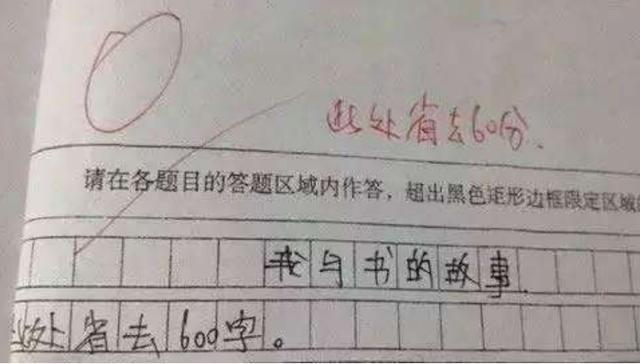 0
此处省去60分.
请在各题目的答题区域内作答，超出黑色矩形边框限定区域
我与书的故事.
此处省去600字。